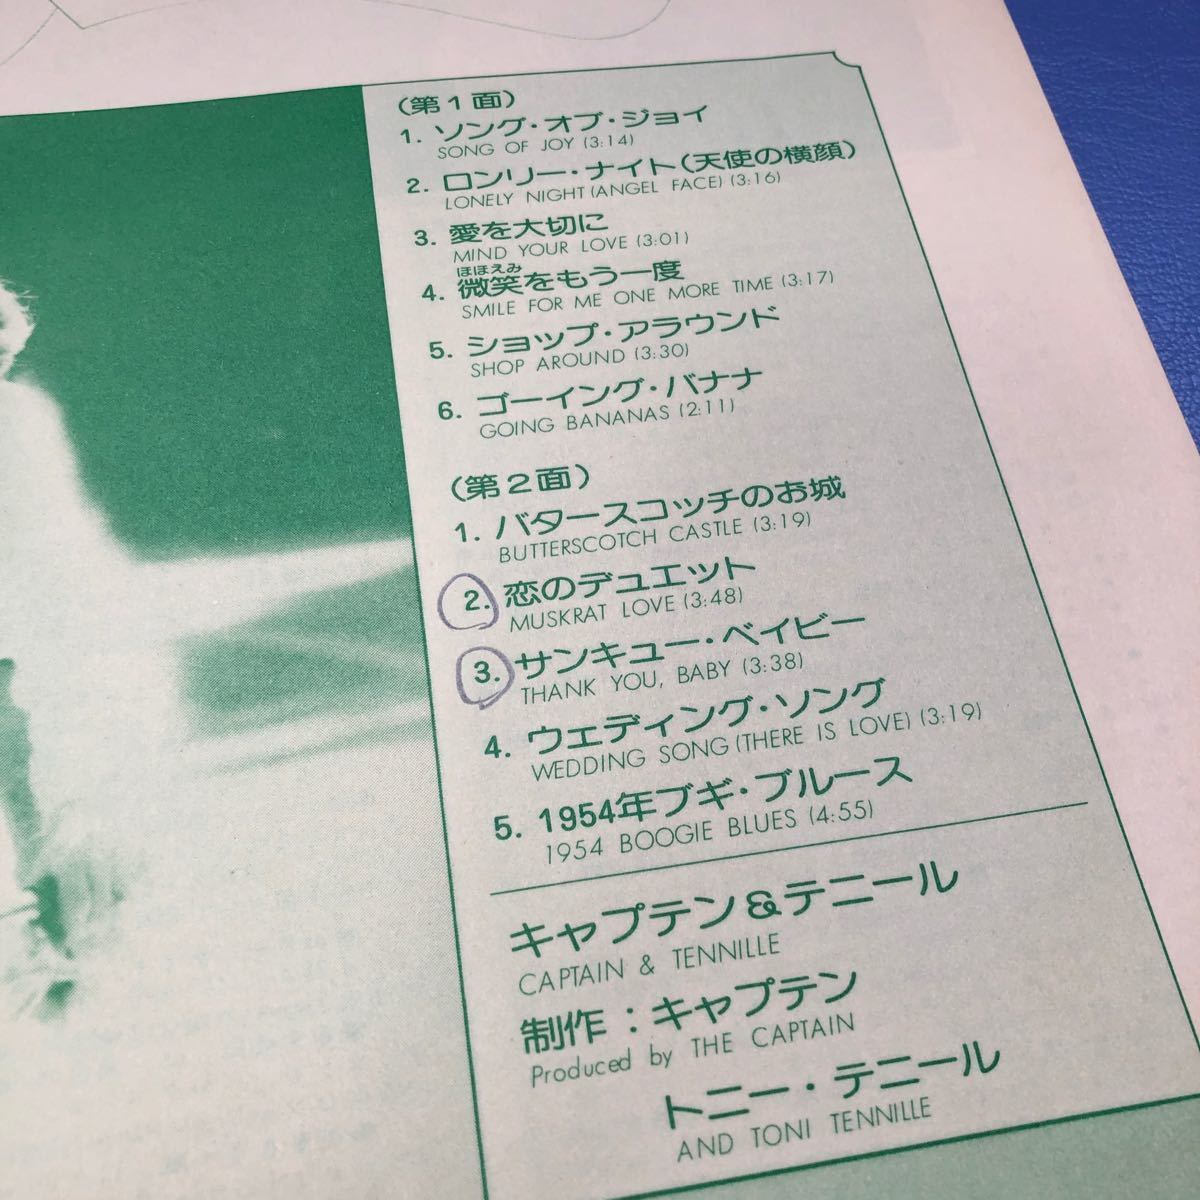 (第1面)
1. ソング・オブ・ジョイ
SONG OF JOY (3:14)
2. ロンリー・ナイト(天使の横顔)
LONELY NIGHT (ANGEL FACE) (3:16)
3. 愛を大切に
MIND YOUR LOVE (3:01)
ほほえみ
4. 微笑をもう一度
SMILE FOR ME ONE MORE TIME (3:17)
5. ショップ・アラウンド
SHOP AROUND (3:30)
6. ゴーイング・バナナ
GOING BANANAS (2:11)
(第2面)
1. バタースコッチのお城
BUTTERSCOTCH CASTLE (3:19)
2. 恋のデュエット
MUSKRAT LOVE (3:48)
3. サンキュー・ベイビー
THANK YOU, BABY (3:38)
4. ウェディング・ソング
WEDDING SONG (THERE IS LOVE) (3:19)
5. 1954年ブギ・ブルース
1954 BOOGIE BLUES (4:55)
キャプテン&テニール
CAPTAIN & TENNILLE
制作：キャプテン
Produced by THE CAPTAIN
トニー・テニール
AND TONI TENNILLE